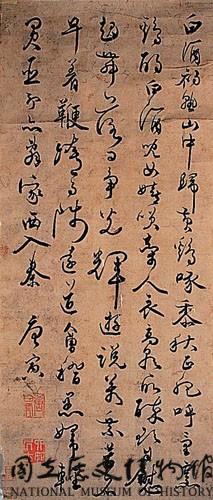 白酒初熟山中歸黃鷄啄黍秋正肥呼童烹
鷄酌白酒兒女嬉笑牽人衣高歌取醉欲自慰
起舞落日爭光輝遊說萬乘苦不
早着鞭跨馬涉遠道會稽愚婦輕
買臣余亦辭家西入秦 唐寅
國立歷史博物館
NATIONAL MUSEUM OF HISTORY